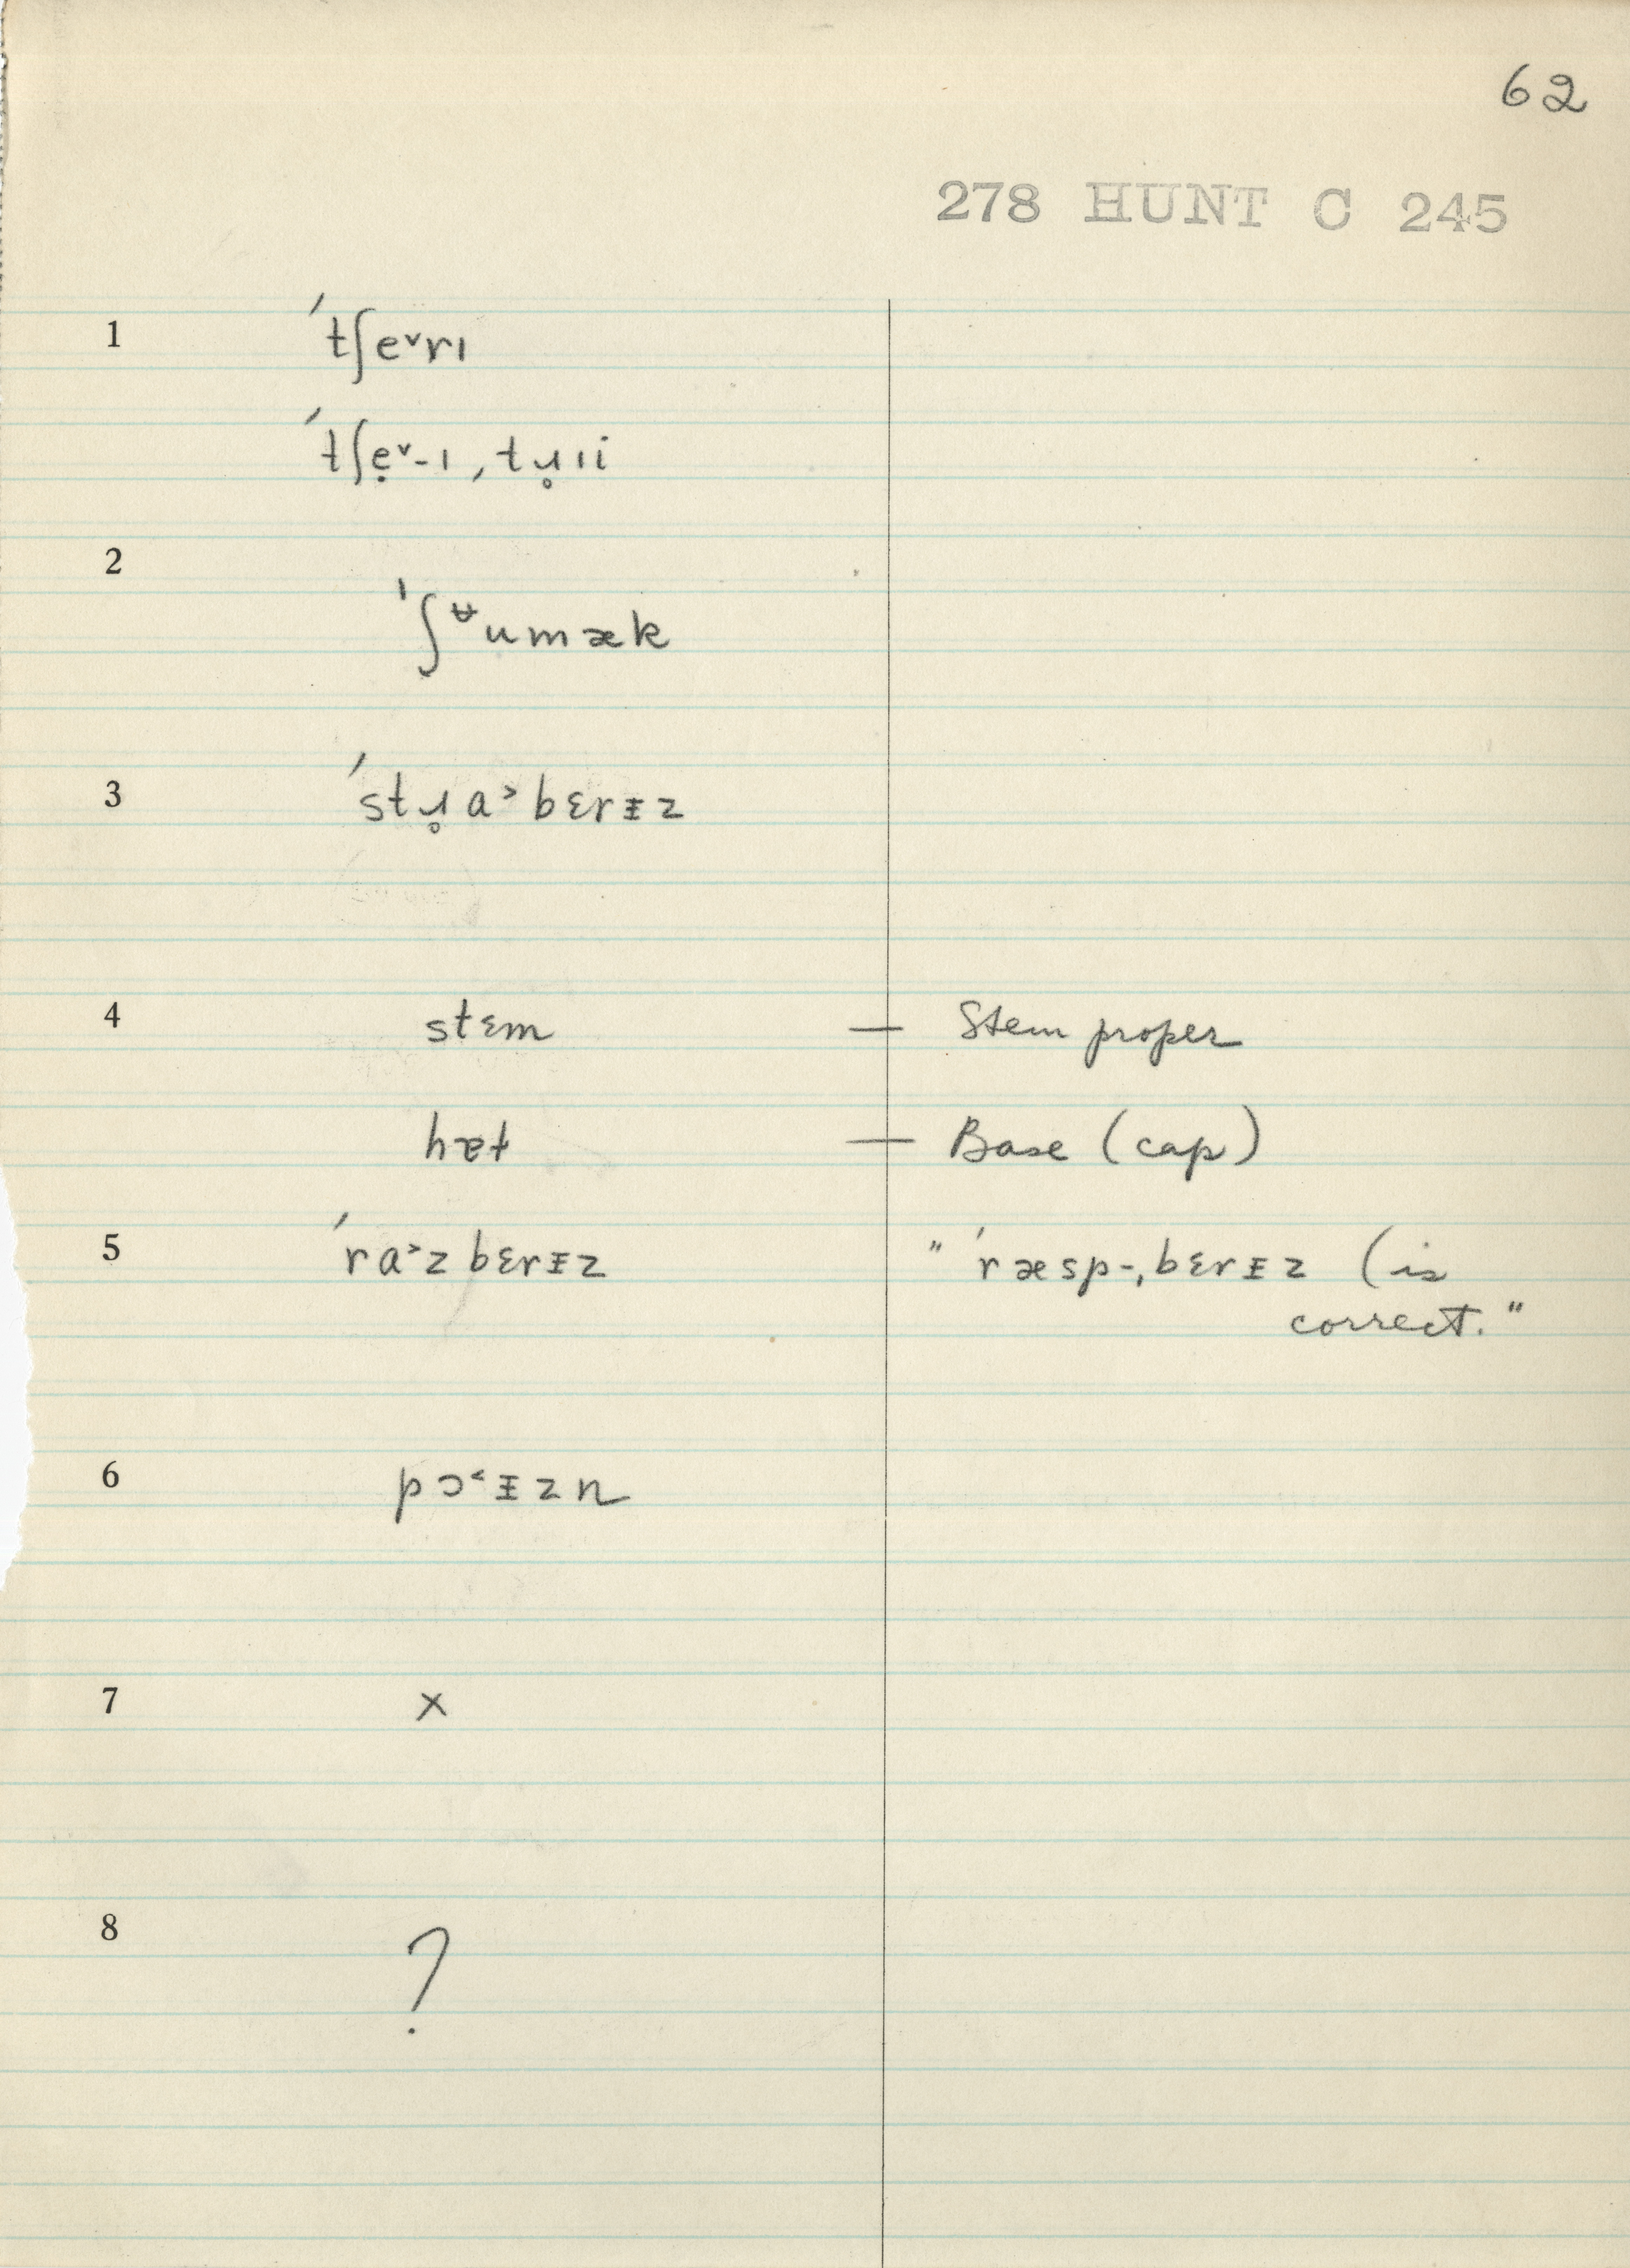 62
278 HUNT C 245
1 ˈtʃe˅rɪ
ˈtʃẹ˅-ɪ, tɹ̥ɪi
2 ˈʃᵾumæk
3 ˈstɹ̥a˃bɛrᵻz
4 stɛm — Stem proper
hæt — Base (cap)
5 ˈra˃zbɛrᵻz " ˈræsp-ˌbɛrᵻz (is
correct."
6 pɔ˂ᵻzn
7 x
8 ?